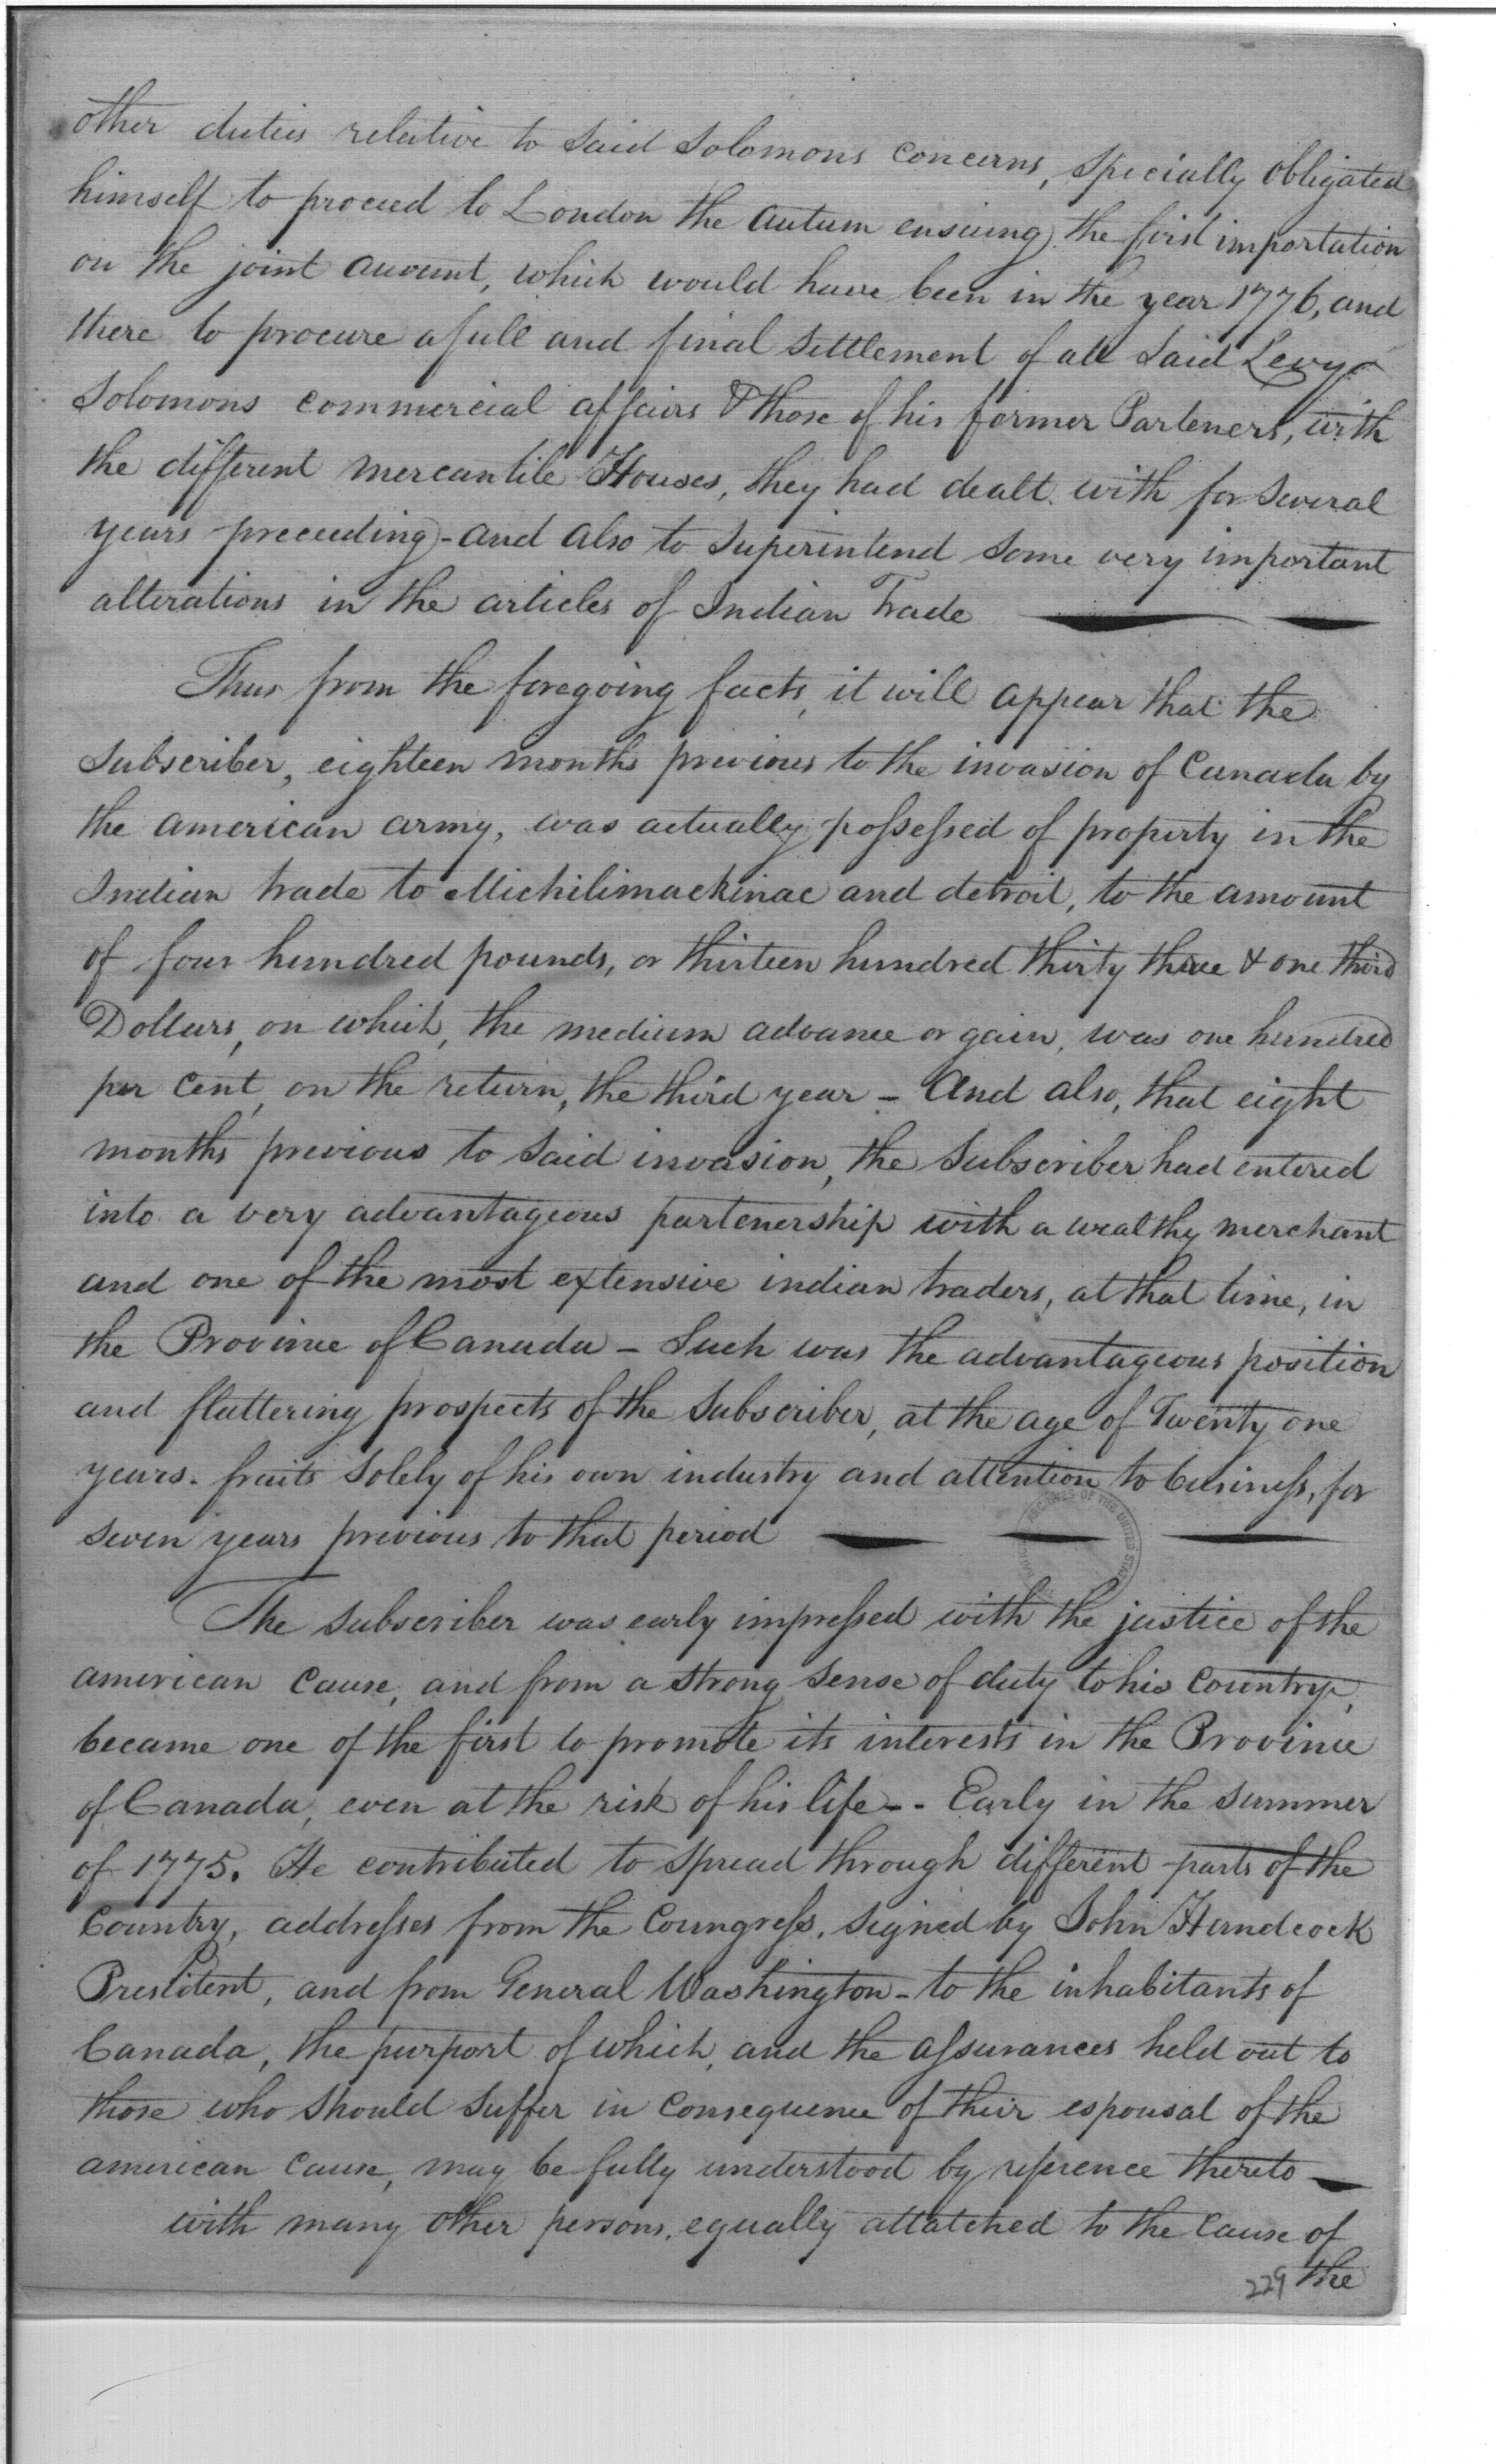 other duties relative to said Solomons concerns, specially obligated
himself to proceed to London the autum ensuing the first importation
on the joint account, which would have been in the year 1776, and
there to procure a full and final settlement of all said Levy
Solomons commercial affairs & those of his former Parteners, with
the different mercantile Houses, they had dealt with for several
years preceeding - and also to superintend some very important
alterations in the articles of Indian Trade
Thus from the foregoing facts, it will appear that the
subscriber, eighteen months previous to the invasion of Canada by
the american army, was actually possessed of property in the
Indian trade to Michilimackinac and detroit, to the amount
of four hundred pounds, or thirteen hundred thirty three & one third
Dollars, on which, the medium advance or gain, was one hundred
per Cent, on the return, the third year - And also, that eight
months previous to said invasion, the subscriber had entered
into a very advantageous partenership with a wealthy merchant
and one of the most extensive indian traders, at that time, in
the Province of Canada - Such was the advantageous position
and flattering prospects of the Subscriber, at the age of Twenty one
years. fruits solely of his own industry and attention to business, for
seven years previous to that period
The subscriber was early impressed with the justice of the
american cause, and from a strong sense of duty to his country,
became one of the first to promote its interests in the Province
of Canada, even at the risk of his life -- Early in the summer
of 1775. He contributed to spread through different parts of the
Country, addresses from the Coungress, signed by John Handcock
President, and from General Washington - to the inhabitants of
Canada, the purport of which, and the assurances held out to
those who should suffer in consequence of their espousal of the
american cause, may be fully understood by reference thereto
with many other persons, equally attatched to the cause of
229 the